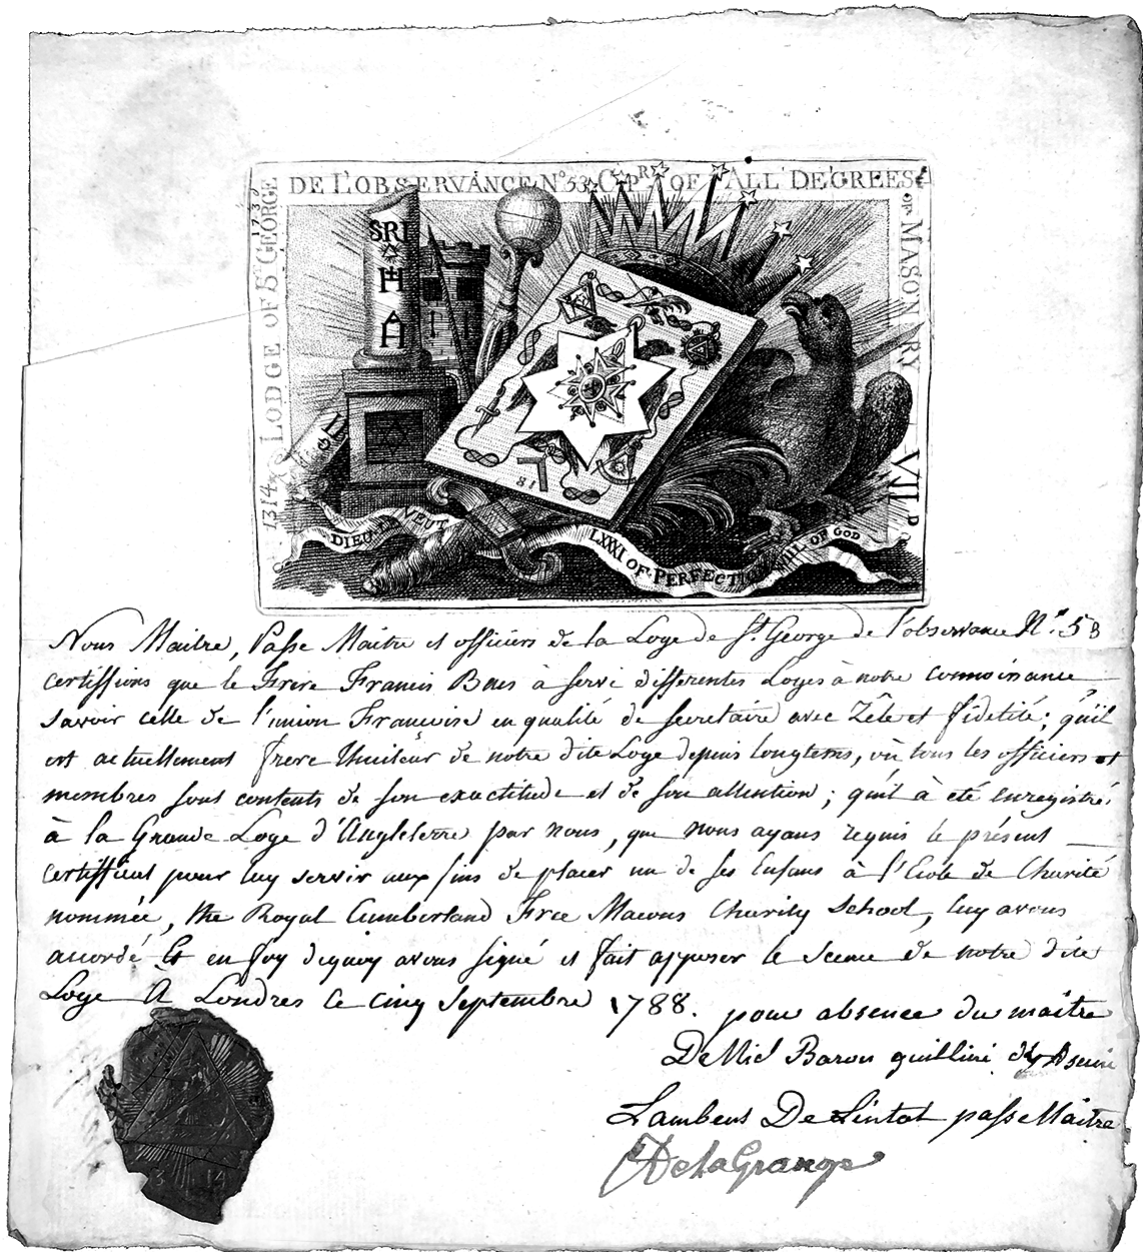 1314 LODGE OF St GEORGE 1737
DE L'OBSERVANCE No 53 CPR OF ALL DEGREES
OF MASONRY VII D
SRI
H
A
81
DIEU VEUT
LXXXI OF PERFECTION WILL OF GOD
Nous Maitre, Passe Maitre et officiers de la Loge de St. George de l'observance No. 53
certiffions que le Frere Francis à servi differentes Loges à notre connoissance
savoir celle de l'union Françoise en qualité de secretaire avec Zêle et fidelité; qu'il
est actuellement frere thuileur de notre dite Loge depuis longtems, où tous les officiers et
membres sont contents de son exactitude et de son attention; qu'il à été enregistré
à la Grande Loge d'Angleterre par nous, que nous ayans requis le présent
certifficat pour luy servir aux fins de placer un de ses Enfans à l'Ecole de Charité
nommée, the Royal Cumberland Free Macons Charity School, luy avons
accordé Et en foy dequoy avons signé et fait apposer le sceau de notre dite
Loge A Londres le cinq Septembre 1788. pour absence du maitre
Baron
Lambert De Lintot passe Maitre
De la Grange
3 14